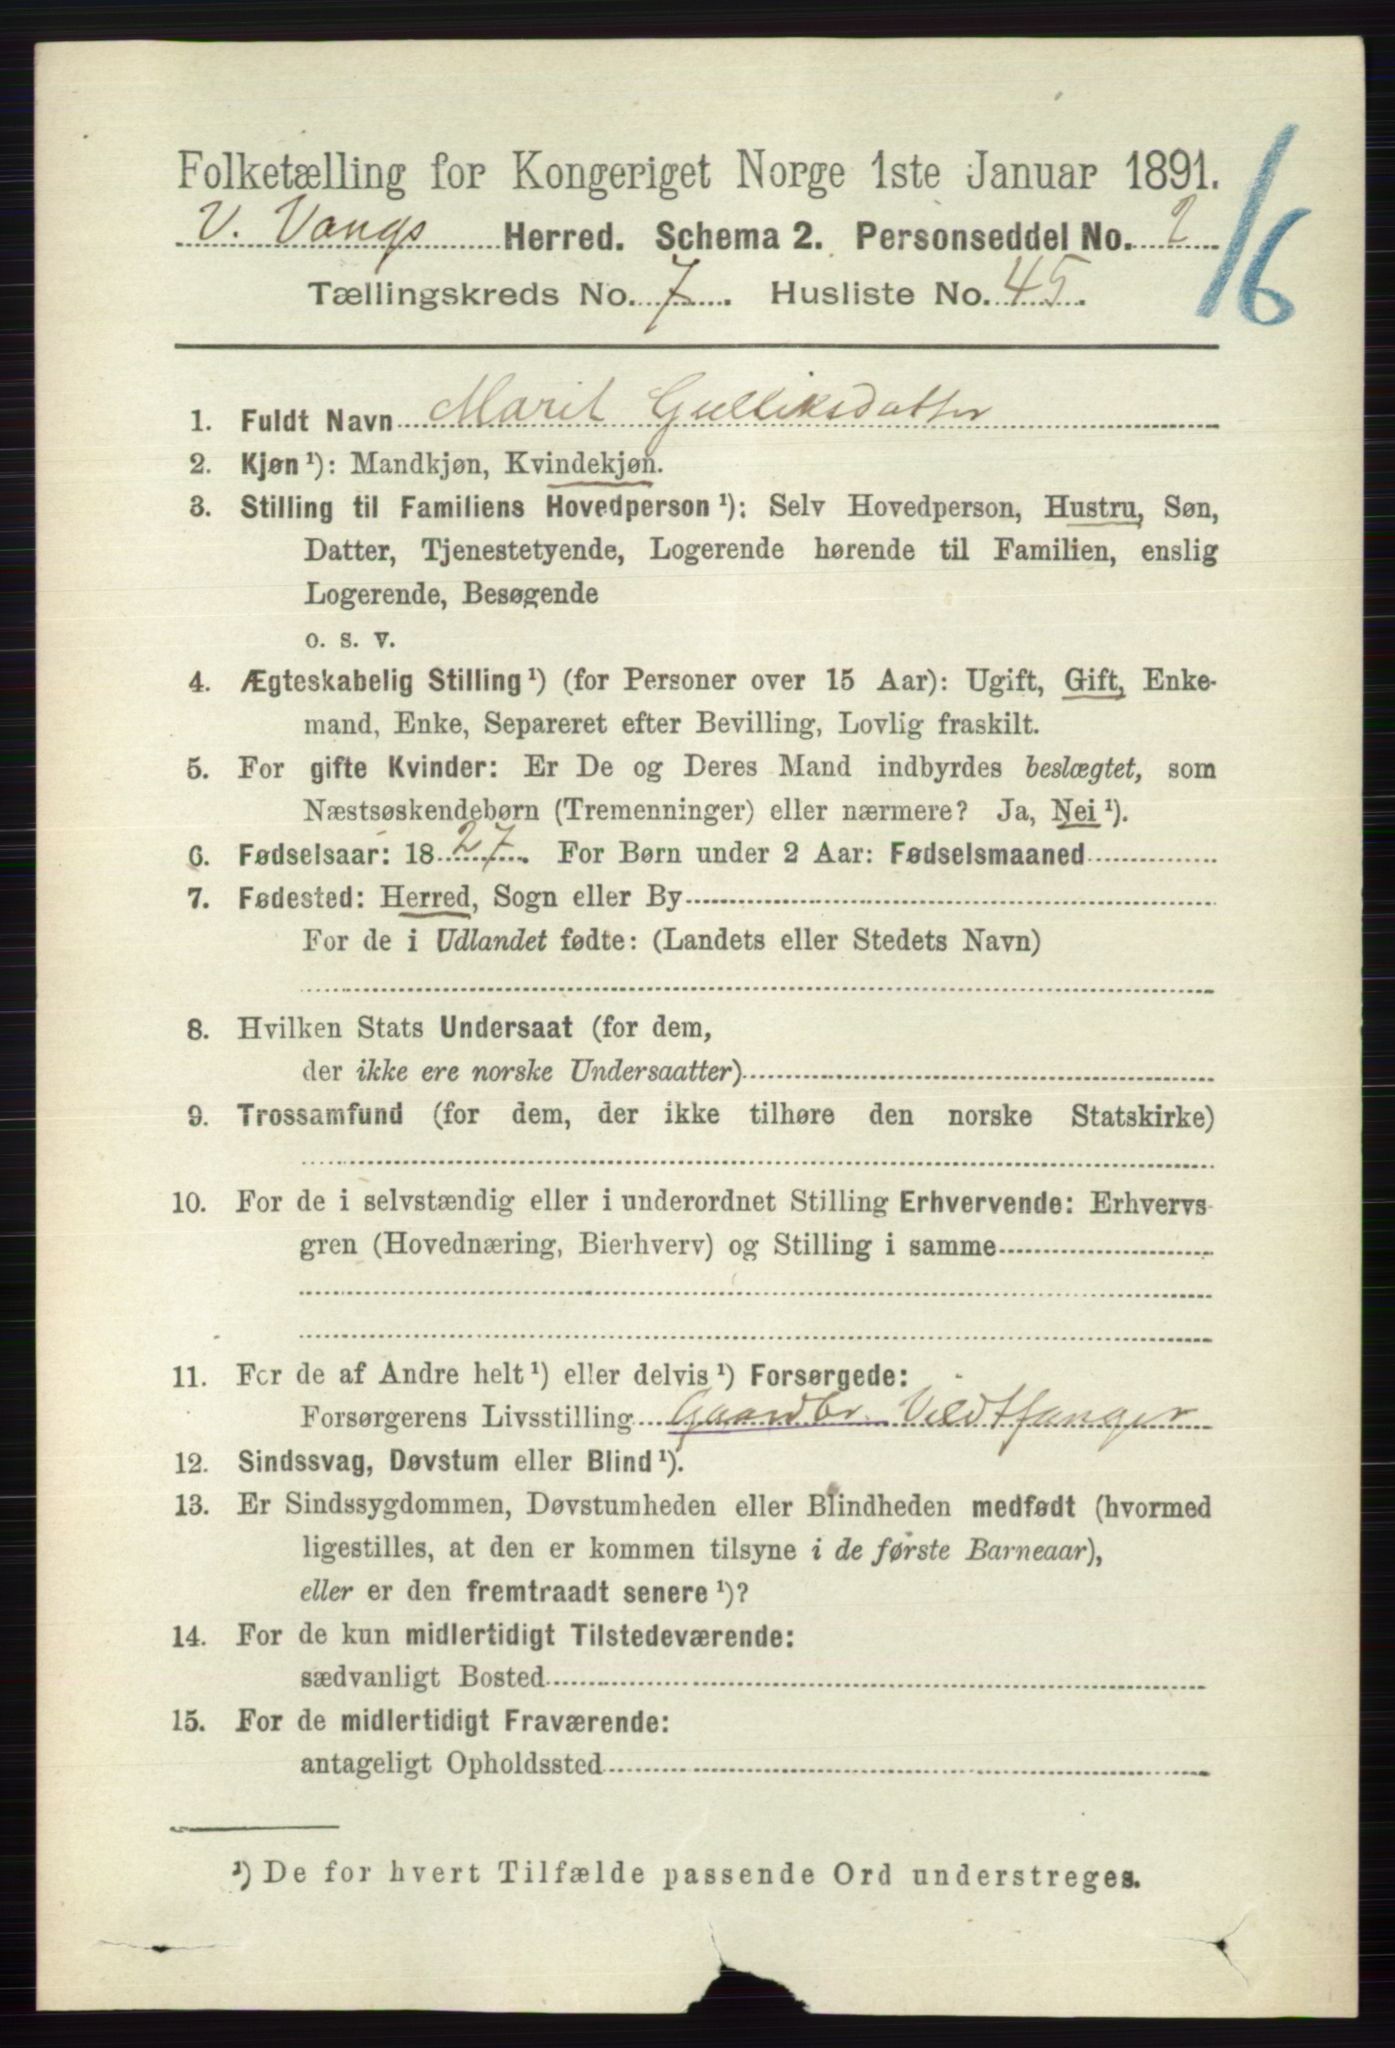 Folketælling for Kongeriget Norge 1ste Januar 1891.
16
V. Vangs Herred. Schema 2. Personseddel No. 2
Tællingskreds No. 7. Husliste No. 45.
1. Fuldt Navn Marit Gulliksdatter
2. Kjøn ¹): Mandkjøn, Kvindekjøn.
3. Stilling til Familiens Hovedperson ¹): Selv Hovedperson, Hustru, Søn,
Datter, Tjenestetyende, Logerende hørende til Familien, enslig
Logerende, Besøgende
o. s. v.
4. Ægteskabelig Stilling ¹) (for Personer over 15 Aar): Ugift, Gift, Enke-
mand, Enke, Separeret efter Bevilling, Lovlig fraskilt.
5. For gifte Kvinder: Er De og Deres Mand indbyrdes beslægtet, som
Næstsøskendebørn (Tremenninger) eller nærmere? Ja, Nei ¹).
6. Fødselsaar: 1827. For Børn under 2 Aar: Fødselsmaaned
7. Fødested: Herred, Sogn eller By
For de i Udlandet fødte: (Landets eller Stedets Navn)
8. Hvilken Stats Undersaat (for dem,
der ikke ere norske Undersaatter)
9. Trossamfund (for dem, der ikke tilhøre den norske Statskirke)
10. For de i selvstændig eller i underordnet Stilling Erhvervende: Erhvervs-
gren (Hovednæring, Bierhverv) og Stilling i samme
11. For de af Andre helt ¹) eller delvis ¹) Forsørgede:
Forsørgerens Livsstilling Gaardbr. Vildtfanger
12. Sindssvag, Døvstum eller Blind ¹).
13. Er Sindssygdommen, Døvstumheden eller Blindheden medfødt (hvormed
ligestilles, at den er kommen tilsyne i de første Barneaar),
eller er den fremtraadt senere ¹)?
14. For de kun midlertidigt Tilstedeværende:
sædvanligt Bosted
15. For de midlertidigt Fraværende:
antageligt Opholdssted
¹) De for hvert Tilfælde passende Ord understreges.